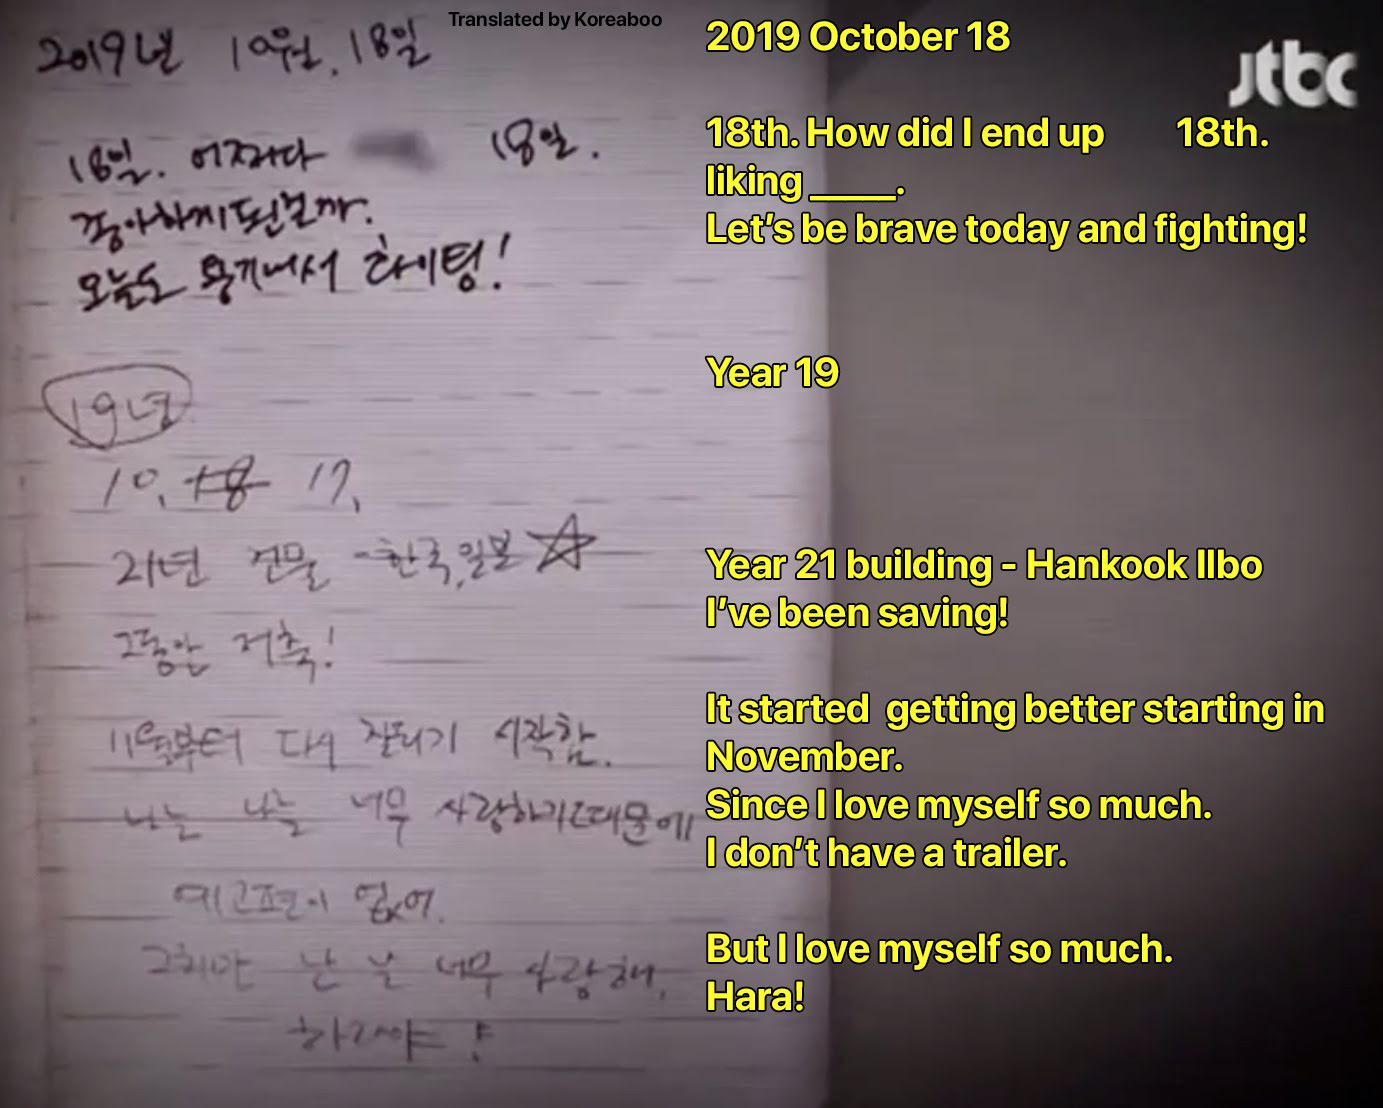 Translated by Koreaboo
jtbc
2019년 10월. 18일
18일. 어쩌다 18일.
좋아하게된걸까.
오늘도 용기내서 화이팅!
19년
10. 18 17.
21년 건물 - 한국, 일본 ☆
그동안 저축!
11월부터 다시 잘되기 시작함.
나는 나를 너무 사랑하기때문에
예고편이 없어.
그치만 난 날 너무 사랑해.
하라야!
2019 October 18
18th. How did I end up 18th.
liking _____.
Let's be brave today and fighting!
Year 19
Year 21 building - Hankook Ilbo
I've been saving!
It started getting better starting in
November.
Since I love myself so much.
I don't have a trailer.
But I love myself so much.
Hara!